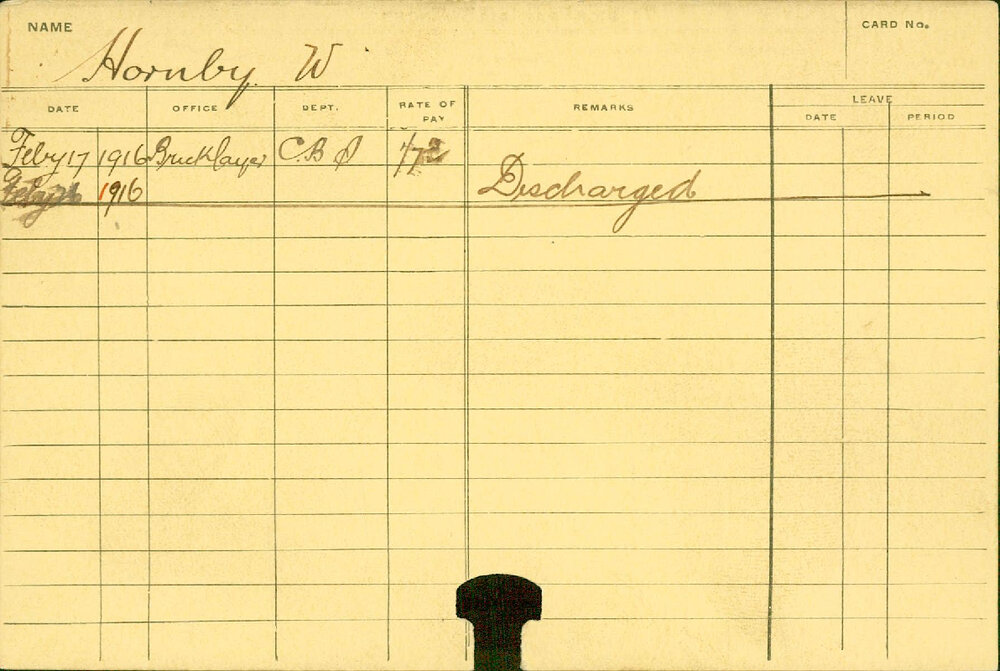 NAME
CARD No.
Hornby W
DATE OFFICE DEPT. RATE OF PAY REMARKS LEAVE
DATE PERIOD
Feby 17 1916 Bricklayer C.B
1916 Discharged